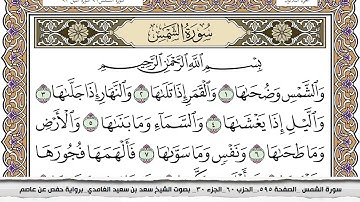 سُورَةُ الشَّمْسِ
بِسْمِ اللَّهِ الرَّحْمَٰنِ الرَّحِيمِ
وَالشَّمْسِ وَضُحَىٰهَا ١ وَالْقَمَرِ إِذَا تَلَىٰهَا ٢ وَالنَّهَارِ إِذَا جَلَّىٰهَا ٣
وَالَّيْلِ إِذَا يَغْشَىٰهَا ٤ وَالسَّمَاءِ وَمَا بَنَىٰهَا ٥ وَالْأَرْضِ
وَمَا طَحَىٰهَا ٦ وَنَفْسٍ وَمَا سَوَّىٰهَا ٧ فَأَلْهَمَهَا فُجُورَهَا
سورة الشمس _ الصفحة ٥٩٥_ الحزب ٦٠_ الجزء ٣٠_ بصوت الشيخ سعد بن سعيد الغامدي_ برواية حفص عن عاصم